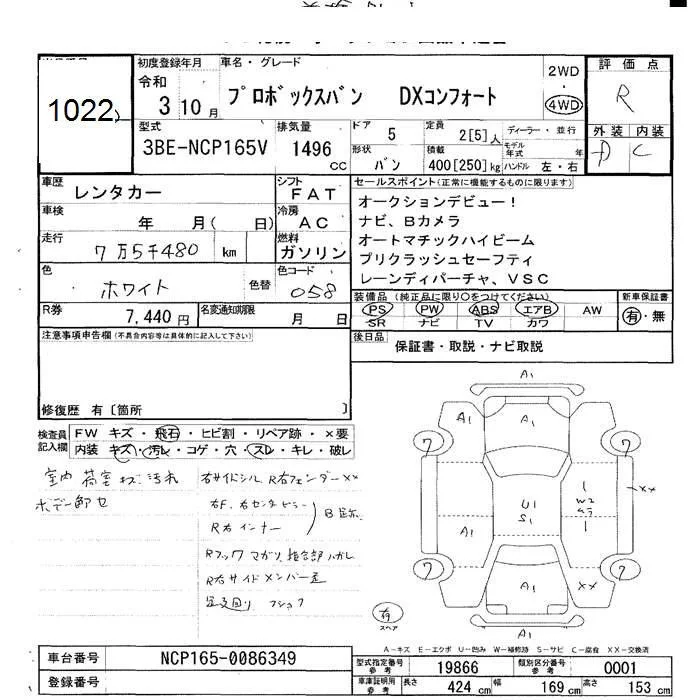 1022
初度登録年月
令和
3 10月
車名・グレード
プロボックスバン DXコンフォート
2WD
4WD
評価点
R
外装 内装
D C
型式
3BE-NCP165V
排気量
1496
cc
ドア
5
定員
2[5]人
ディーラー・並行
形状
バン
積載
400[250]kg
モデル年式 年
ハンドル 左・右
車歴
レンタカー
シフト
FAT
車検
年 月( 日)
冷房
AC
走行
7万5千480 km
燃料
ガソリン
色
ホワイト
色替
色コード
058
R券
7,440円
名変通知期限
月 日
セールスポイント(正常に機能するものに限ります)
オークションデビュー!
ナビ、Bカメラ
オートマチックハイビーム
プリクラッシュセーフティ
レーンディパーチャ、VSC
装備品 (純正品に限り○をつけてください)
PS PW ABS エアB AW
SR ナビ TV カワ
新車保証書
有・無
後日品
保証書・取説・ナビ取説
注意事項申告欄(不具合内容等は具体的に記入して下さい)
修復歴 有〔箇所 〕
検査員記入欄
FW キズ・飛石・ヒビ割・リペア跡・×要
内装 キズ・汚レ・コゲ・穴・スレ・キレ・破レ
室内 荷室 キズ 汚れ
右サイドシル R右フェンダー××
R右インナー
A1
A1
A1
7
7
××
U1
S1
1
W2
1
A1
××
7
7
A1
A1
有
スペア
A-キズ E-エクボ U-凹み W-補修跡 S-サビ C-腐食 XX-交換済
車台番号
NCP165-0086349
登録番号
型式指定番号
参考
19866
類別区分番号
参考
0001
車庫証明用
参考
長さ 424 cm
幅 169 cm
高さ 153 cm